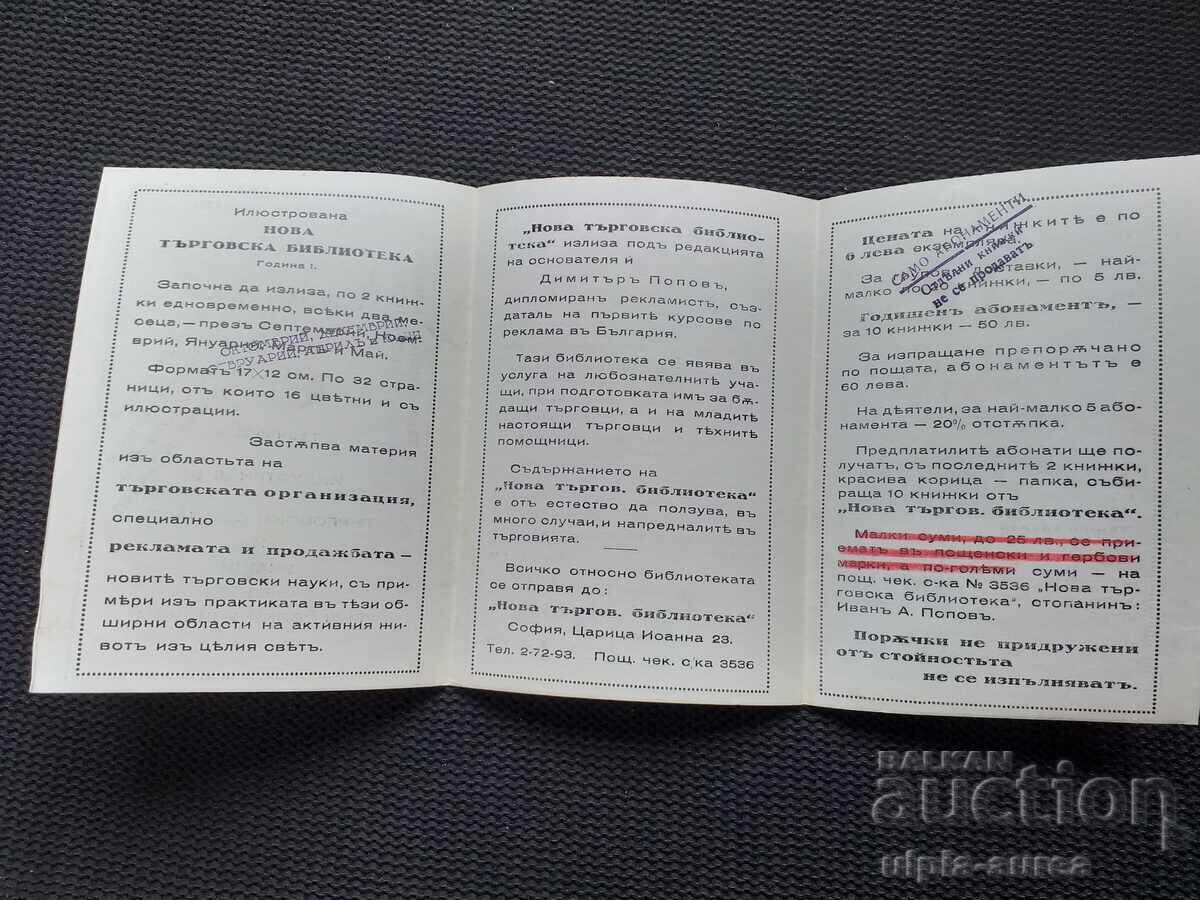 Илюстрована
НОВА
ТЪРГОВСКА БИБЛИОТЕКА
Година I.
Започна да излиза, по 2 книж-
ки едновременно, всѣки два ме-
сеца, — презъ Септемврий, Ноем-
врий, Януарий, Мартъ и Май.
ОКТОМВРИЙ, ДЕКЕМВРИЙ,
ФЕВРУАРИЙ, АПРИЛЪ и
Форматъ 17×12 см. По 32 стра-
ници, отъ които 16 цвѣтни и съ
илюстрации.
Застѫпва материя
изъ областьта на
търговската организация,
специално
рекламата и продажбата —
новитѣ търговски науки, съ при-
мѣри изъ практиката въ тѣзи об-
ширни области на активния жи-
вотъ изъ цѣлия свѣтъ.
„Нова търговска библио-
тека“ излиза подъ редакцията
на основателя ѝ
Димитъръ Поповъ,
дипломиранъ рекламистъ, съз-
датель на първитѣ курсове по
реклама въ България.
Тази библиотека се явява въ
услуга на любознателнитѣ уча-
щи, при подготовката имъ за бѫ-
дащи търговци, а и на младитѣ
настоящи търговци и тѣхнитѣ
помощници.
Съдържанието на
„Нова търгов. библиотека“
е отъ естество да ползува, въ
много случаи, и напредналитѣ въ
търговията.
Всичко относно библиотеката
се отправя до:
„Нова търгов. библиотека“
София, Царица Иоанна 23.
Тел. 2-72-93. Пощ. чек. с/ка 3536
Цената на книжкитѣ е по
6 лева екземпляра.
САМО АБОНАМЕНТИ
Отдѣлни книжки
не се продаватъ
За групови доставки, — най-
малко по 10 книжки, — по 5 лв.
Годишенъ абонаментъ, —
за 10 книжки — 50 лв.
За изпращане препорѫчано
по пощата, абонаментътъ е
60 лева.
На дѣятели, за най-малко 5 або-
намента — 20% отстѫпка.
Предплатилитѣ абонати ще по-
лучатъ, съ последнитѣ 2 книжки,
красива корица — папка, съби-
раща 10 книжки отъ
„Нова търгов. библиотека“.
Малки суми, до 25 лв., се при-
ематъ въ пощенски и гербови
марки, а по-голѣми суми — на
пощ. чек. с-ка № 3536 „Нова тър-
говска библиотека“, стопанинъ:
Иванъ А. Поповъ.
Порѫчки не придружени
отъ стойностьта
не се изпълняватъ.
BALKAN
auction
ulpia-aurea